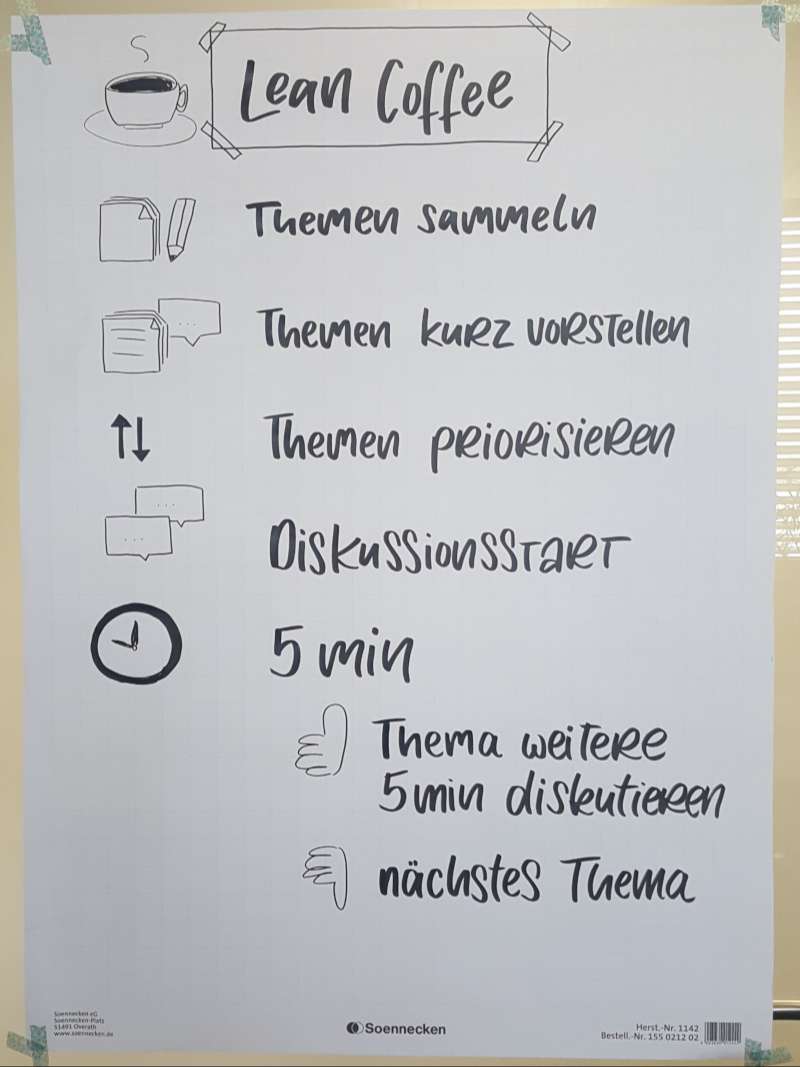 Lean Coffee
Themen sammeln
Themen kurz vorstellen
Themen priorisieren
Diskussionsstart
5 min
Thema weitere
5 min diskutieren
nächstes Thema
Soennecken eG
Soennecken-Platz
51491 Overath
www.soennecken.de
Soennecken
Herst.-Nr. 1142
Bestell.-Nr. 155 0212 02